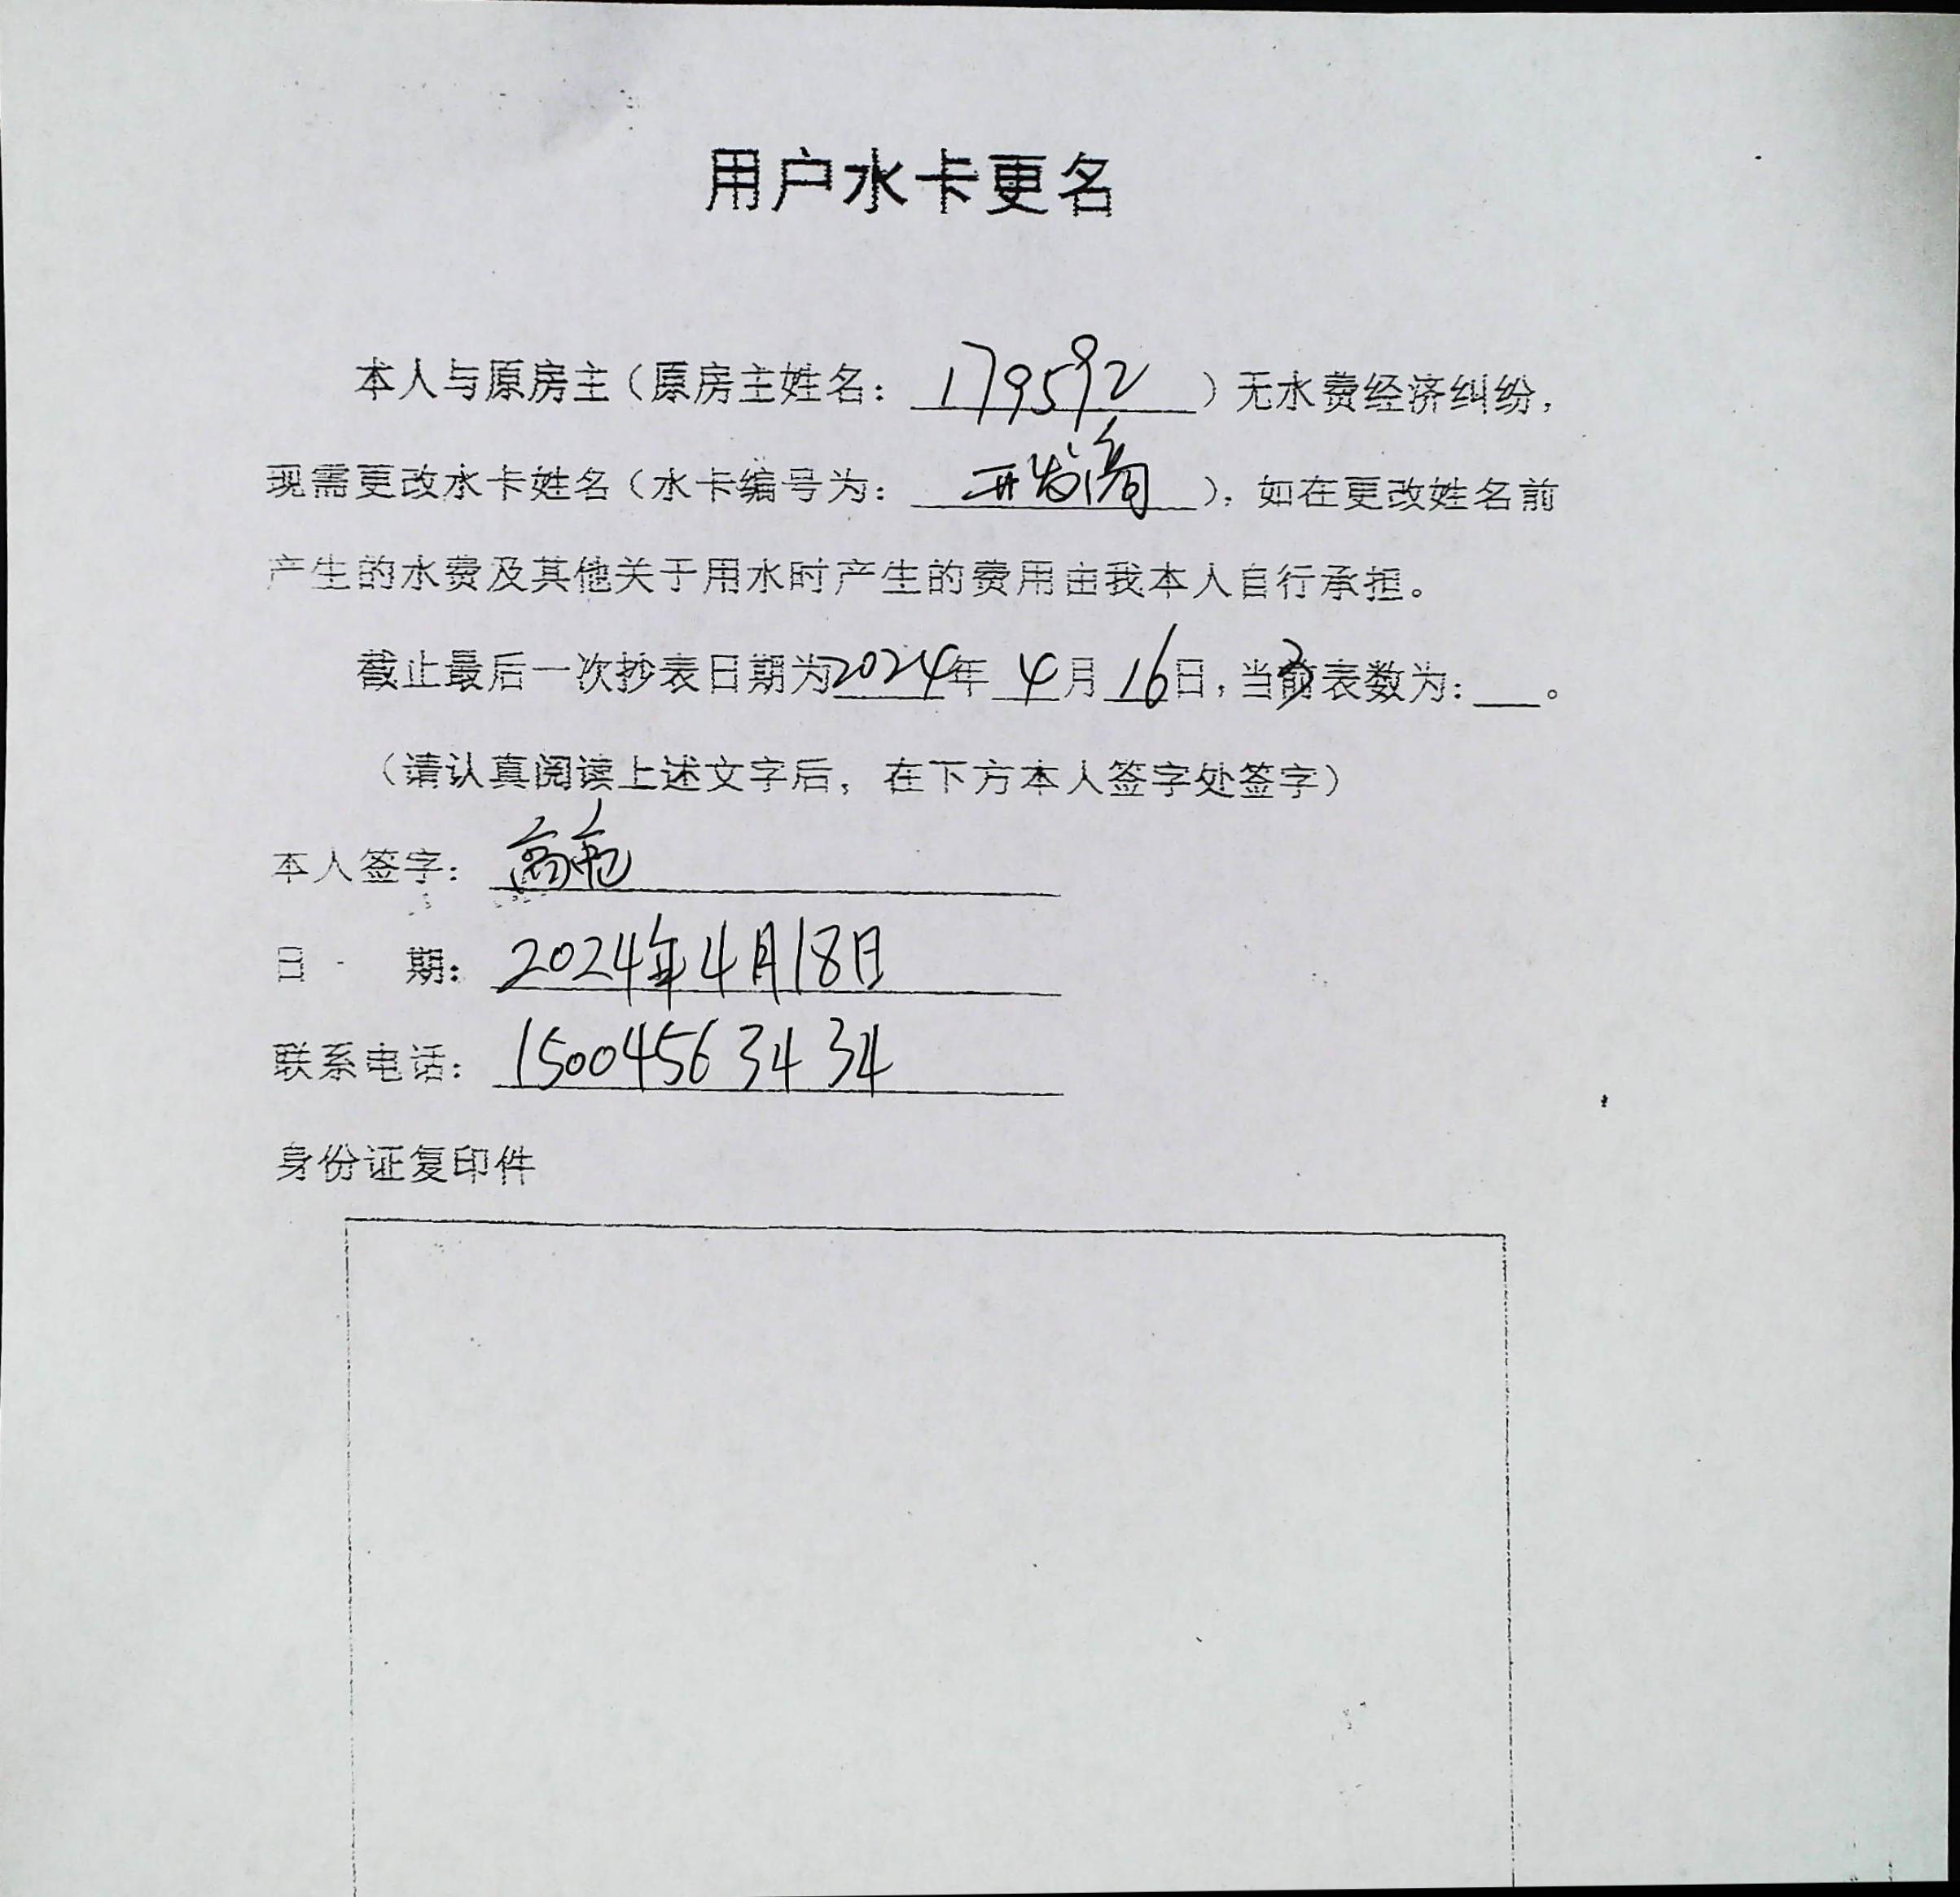 用户水卡更名
本人与原房主（原房主姓名：179592）无水费经济纠纷，
现需更改水卡姓名（水卡编号为：开发商），如在更改姓名前
产生的水费及其他关于用水时产生的费用由我本人自行承担。
截止最后一次抄表日期为2024年4月16日，当前表数为：3。
（请认真阅读上述文字后，在下方本人签字处签字）
本人签字：
日期：2024年4月18日
联系电话：15004563434
身份证复印件